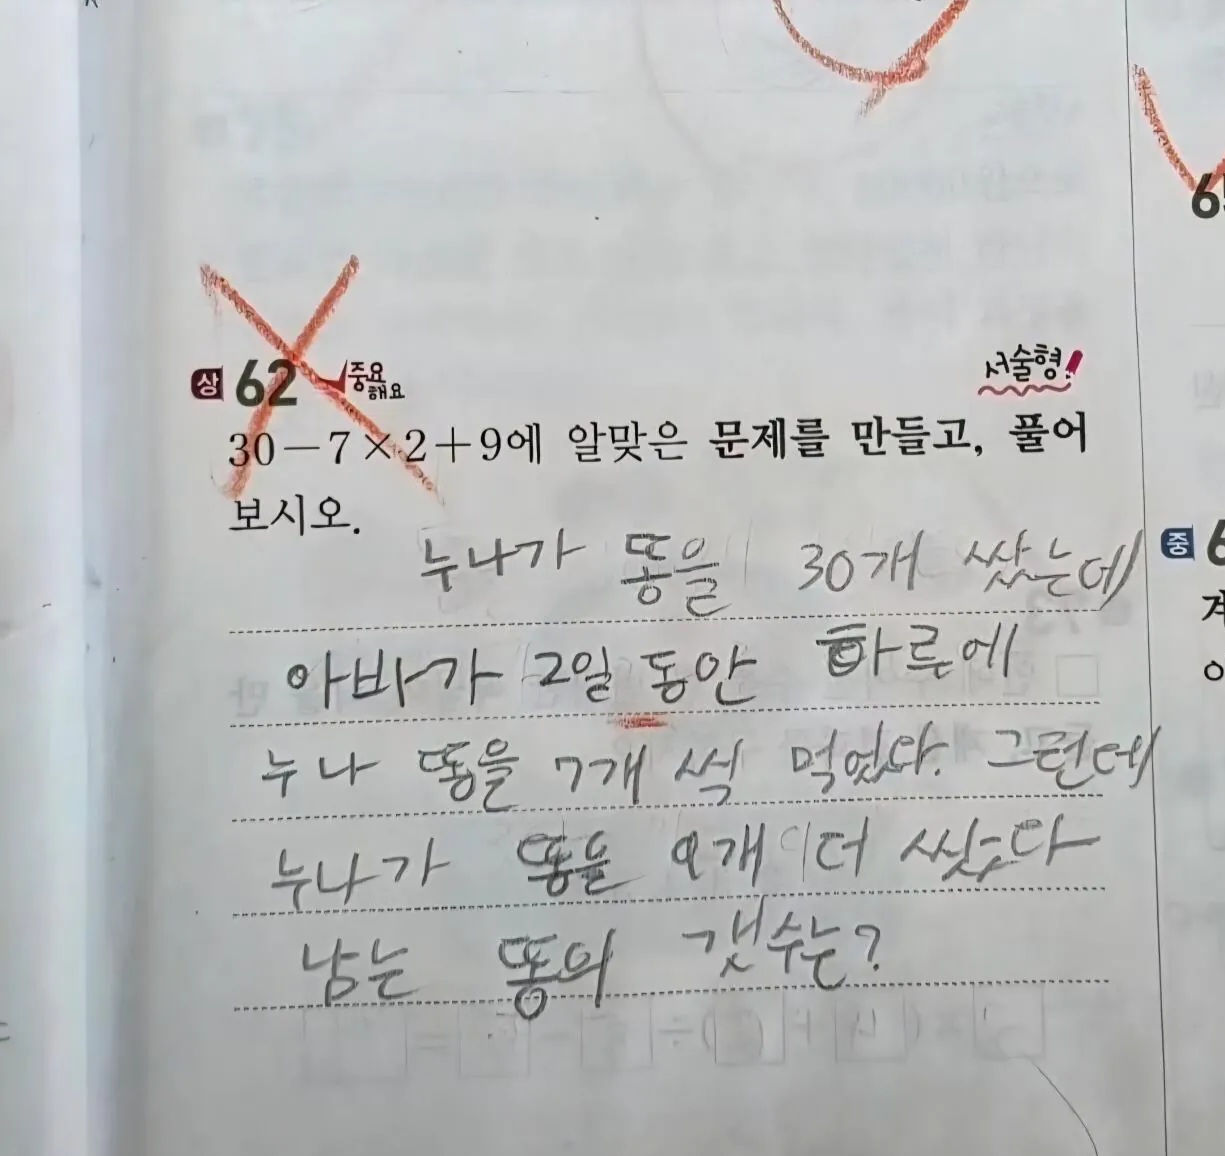 상 62 중요해요
서술형!
30-7×2+9에 알맞은 문제를 만들고, 풀어
보시오.
누나가 똥을 30개 쌌는데
아바가 2일 동안 하루에
누나 똥을 7개 씩 먹었다. 그런데
누나가 똥을 9개 더 쌌다
남는 똥의 갯수는?
중